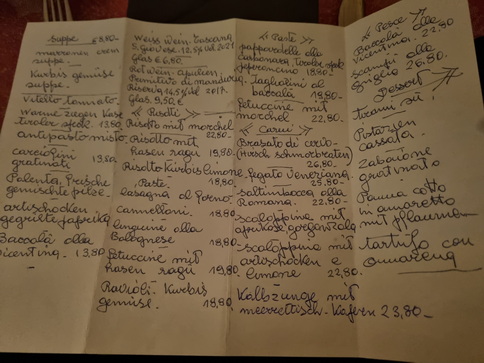 suppe 6,80-
marronen crem
suppe.
Kürbis gemüse
suppe.
Vitello tonnato-
Warme Ziegen Käse
tiroler speck. 13,80
antipasto misto
carciofini 13,80
gratinati
Polenta, Frische
gemischte pilze-
artischocken
gegrillte paprika
Baccalà alla
vicentina. 13,80
Weiss Wein. Toscana
Glas € 6,80
Rot wein. apulien.
Primitivo di manduria
Riserva 14,5% vol 2017
Glas. 9,50 €
« Risotti »
Risotto mit morchel
22,80-
Risotto mit
hasen ragu 19,80
Risotto Kürbis limone
18,80
Paste
lasagna al Forno-
Cannelloni. 18,80
linguine alla
Bolognese 18,80
Fetuccine mit
hasen ragu 19,80
Ravioli- Kürbis
gemüse. 18,80
« Paste »
pappardelle alla
carbonara Tiroler speck
peperoncino 18,80-
Tagliolini al
baccalà 19,80
Fetuccine mit
morchel 22,80-
« Carni »
Brasato di cervo-
(Hirsch schmorbraten)
26,80-
Fegato Veneziana
25,80-
saltimbocca alla
Romana. 22,80-
scaloppina mit
aprikose gorgonzola
-scaloppina mit
artischocken e
limone 22,80-
Kalbszunge mit
meerrettisch- Kapern 23,80-
« Pesce »
Baccalà alla
vicentina. 22,80
scampi alla
griglia 26,80-
Dessert
tirami sú!
cassata.
Zabaione
gratinato
Panna cotta
in amaretto
mit pflaumen-
tartufo con